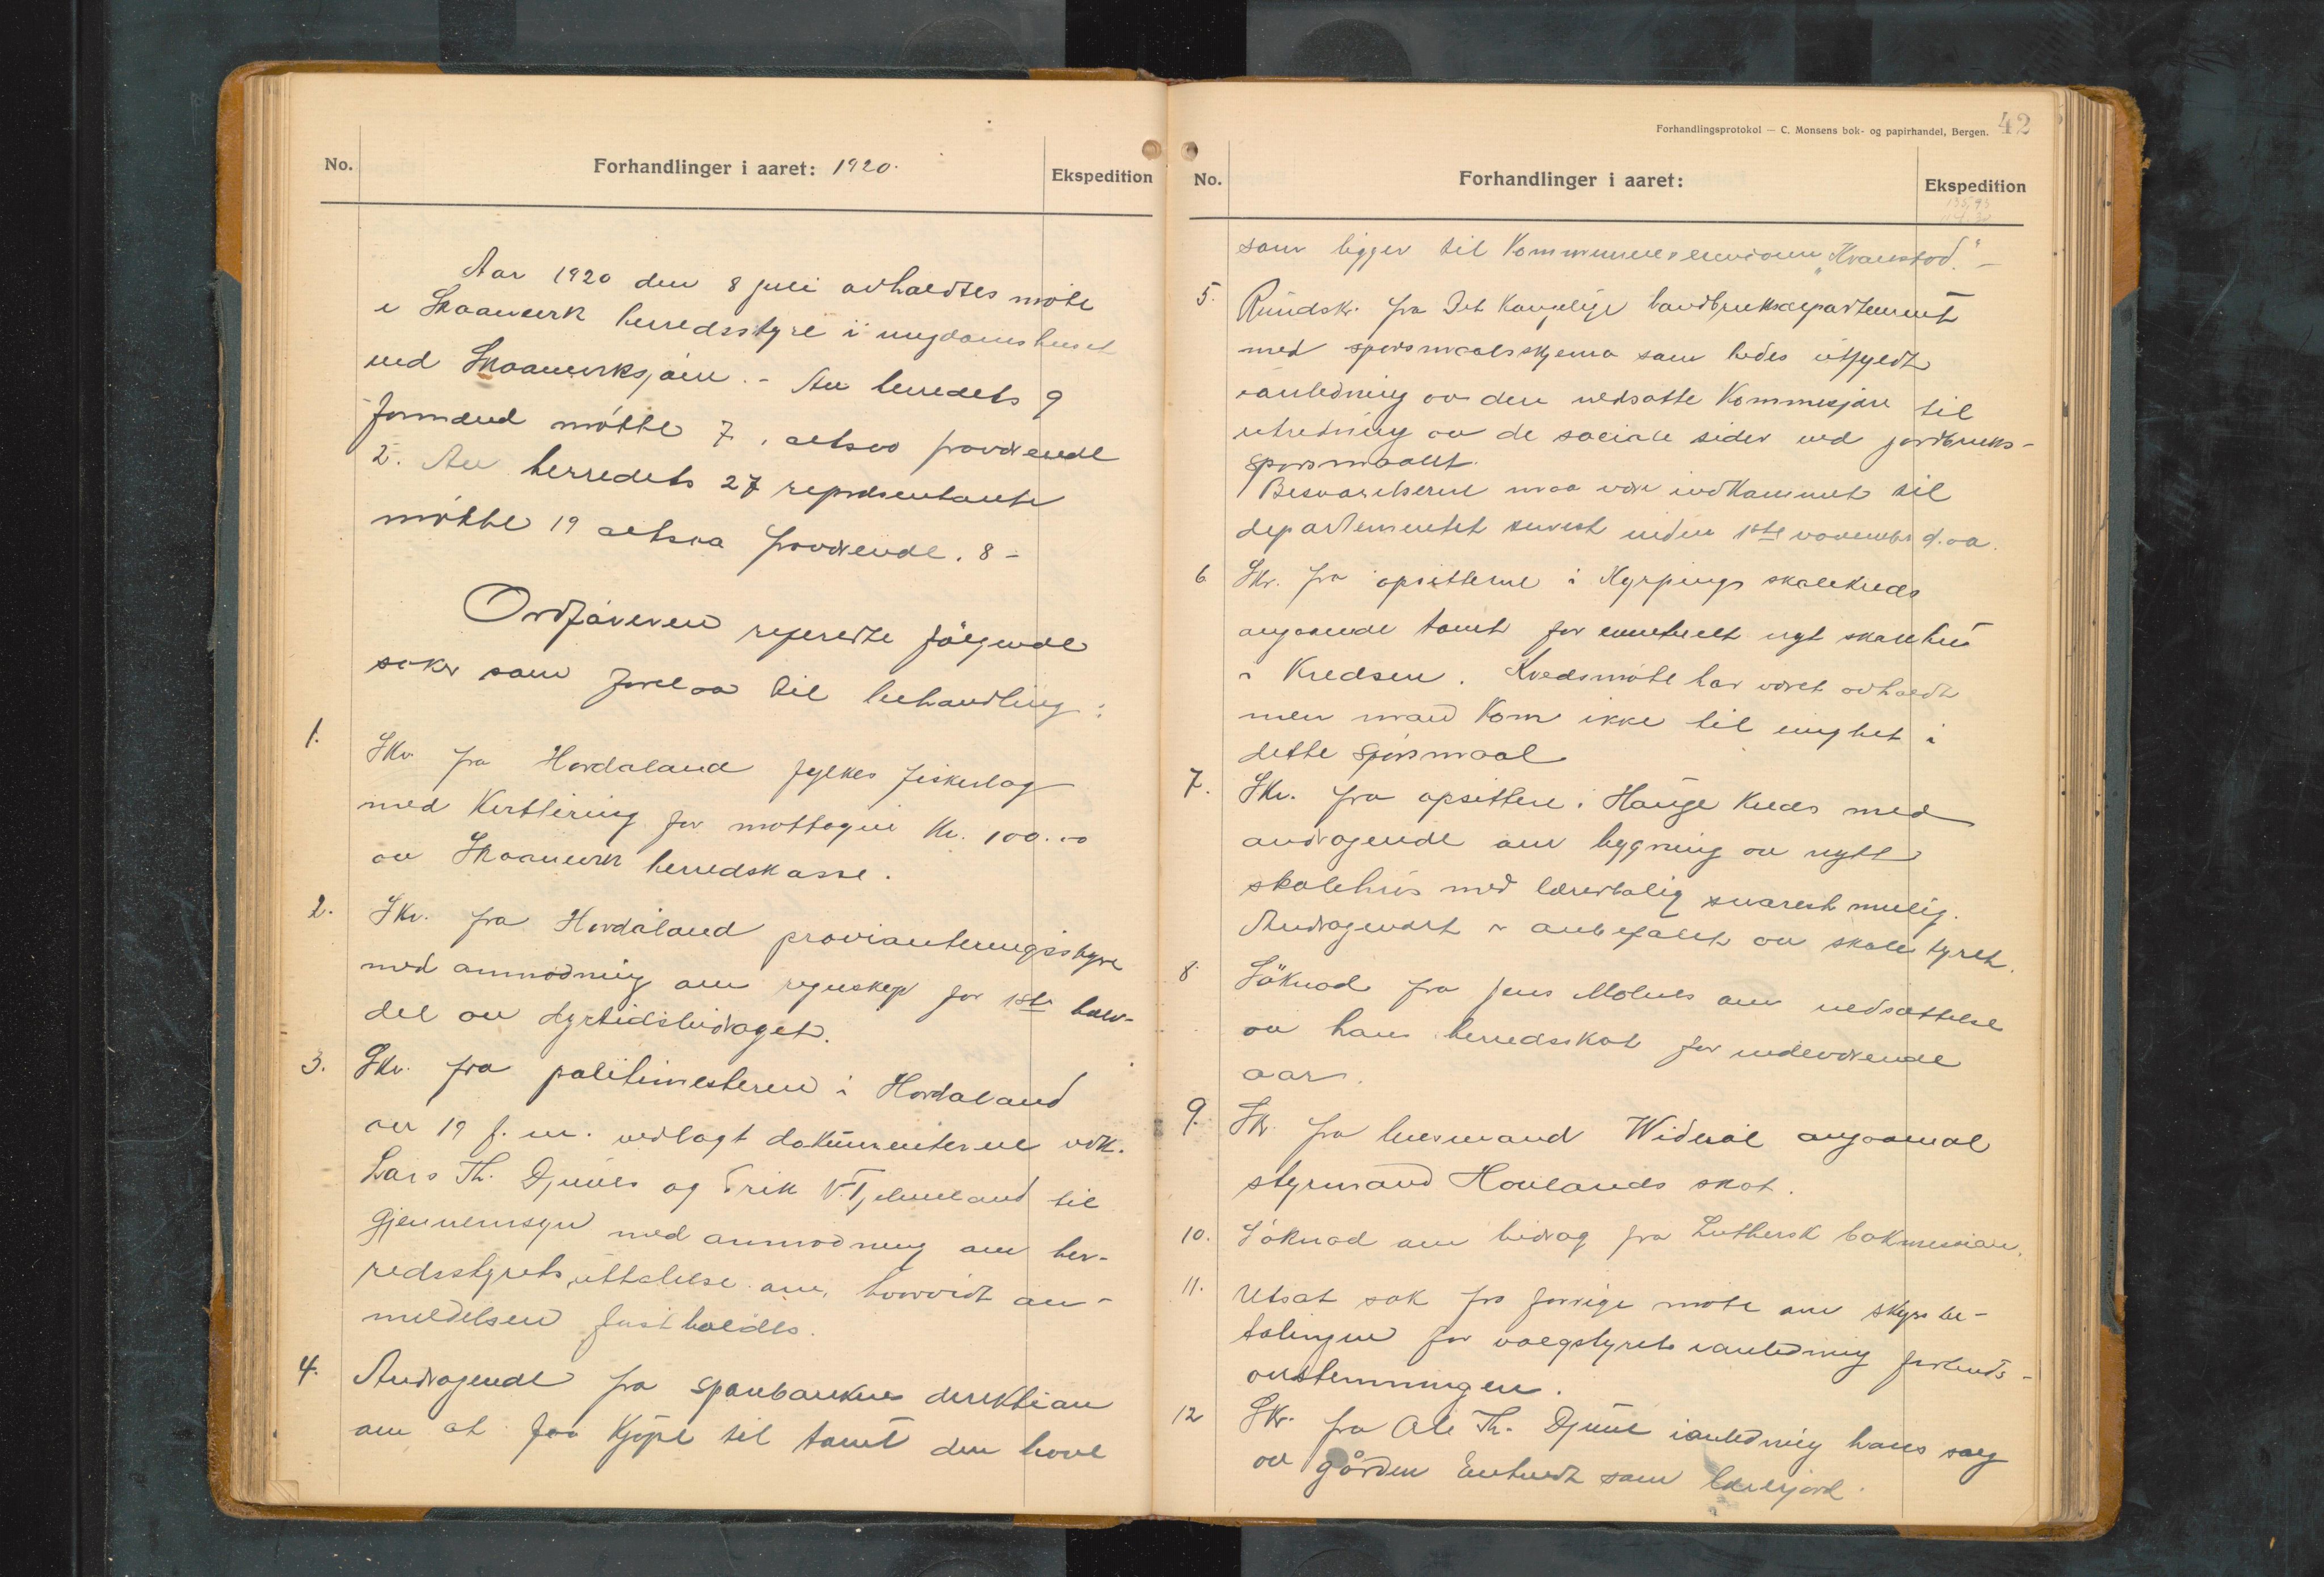 No.
Forhandlinger i aaret: 1920.
Ekspedition
Aar 1920 den 8 juli avholdtes möte
i Skaanevik herredsstyre i ungdomshuset
ved Skaaneviksjöen. - Av herredets 9
formænd mötte 7, altsaa fraværende
2. Av herredets 27 repræsentanter
mötte 19 altsaa fraværende. 8 -
Ordföreren refererte fölgende
saker som forelaa til behandling:
1. Skr. fra Hordaland fylkes fiskerlag
med kvittering for mottagne Kr. 100.00
av Skaanevik herredskasse.
2. Skr. fra Hordaland provianteringsstyre
med anmodning om regnskap for 1ste halv-
del av dyrtidsbidraget.
3. Skr. fra politimesteren i Hordaland
av 19 f. m. vedlagt dokumenterne vdk.
Lars Th. Djuve og Erik V. Tjelmeland til
gjennemsyn med anmodning om her-
redsstyrets uttalelse om, hvorvidt an-
meldelsen fastholdes.
4. Andragende fra sparebankens direktion
om at faa kjöpe til tomt den have
Forhandlingsprotokol — C. Monsens bok- og papirhandel, Bergen. 42
No.
Forhandlinger i aaret:
Ekspedition
som ligger til Kommunens eiendom "Kvamstod". -
5. Rundskr. fra Det Kongelige landbruksdepartement
med spörsmaalsskjema som bedes utfyldt
ianledning av den nedsatte Kommisjon til
utredning av de sociale sider ved jordbruks-
spörsmaalet.
Besvarelserne maa være indkommet til
departementet senest inden 1ste november d. aa.
6 Skr. fra opsitterne i Kyrpings skolekreds
angaaende tomt for eventuelt nyt skolehus
i Kredsen. Kredsmöte har været avholdt
men man kom ikke til enighet i
dette spörsmaal
7. Skr. fra opsittere i Hauge Kreds med
andragende om bygning av nytt
skolehus med lærerbolig snarest mulig.
Andragendet er anbefalet av skolestyret.
8 Söknad fra Jens Molnes om nedsættelse
av hans herredsskat for indeværende
aar.
9. Skr. fra lensmand Wideröe angaaende
styrmand Hovlands skat.
10. Söknad om bidrag fra Luthersk bokmission.
11. Utsat sak fra forrige möte om skyssbe-
talingen for valgstyret ianledning forbuds-
avstemningen.
12 Skr. fra Ole Th. Djuve ianledning hans salg
av gården Eintveit som lærerjord.